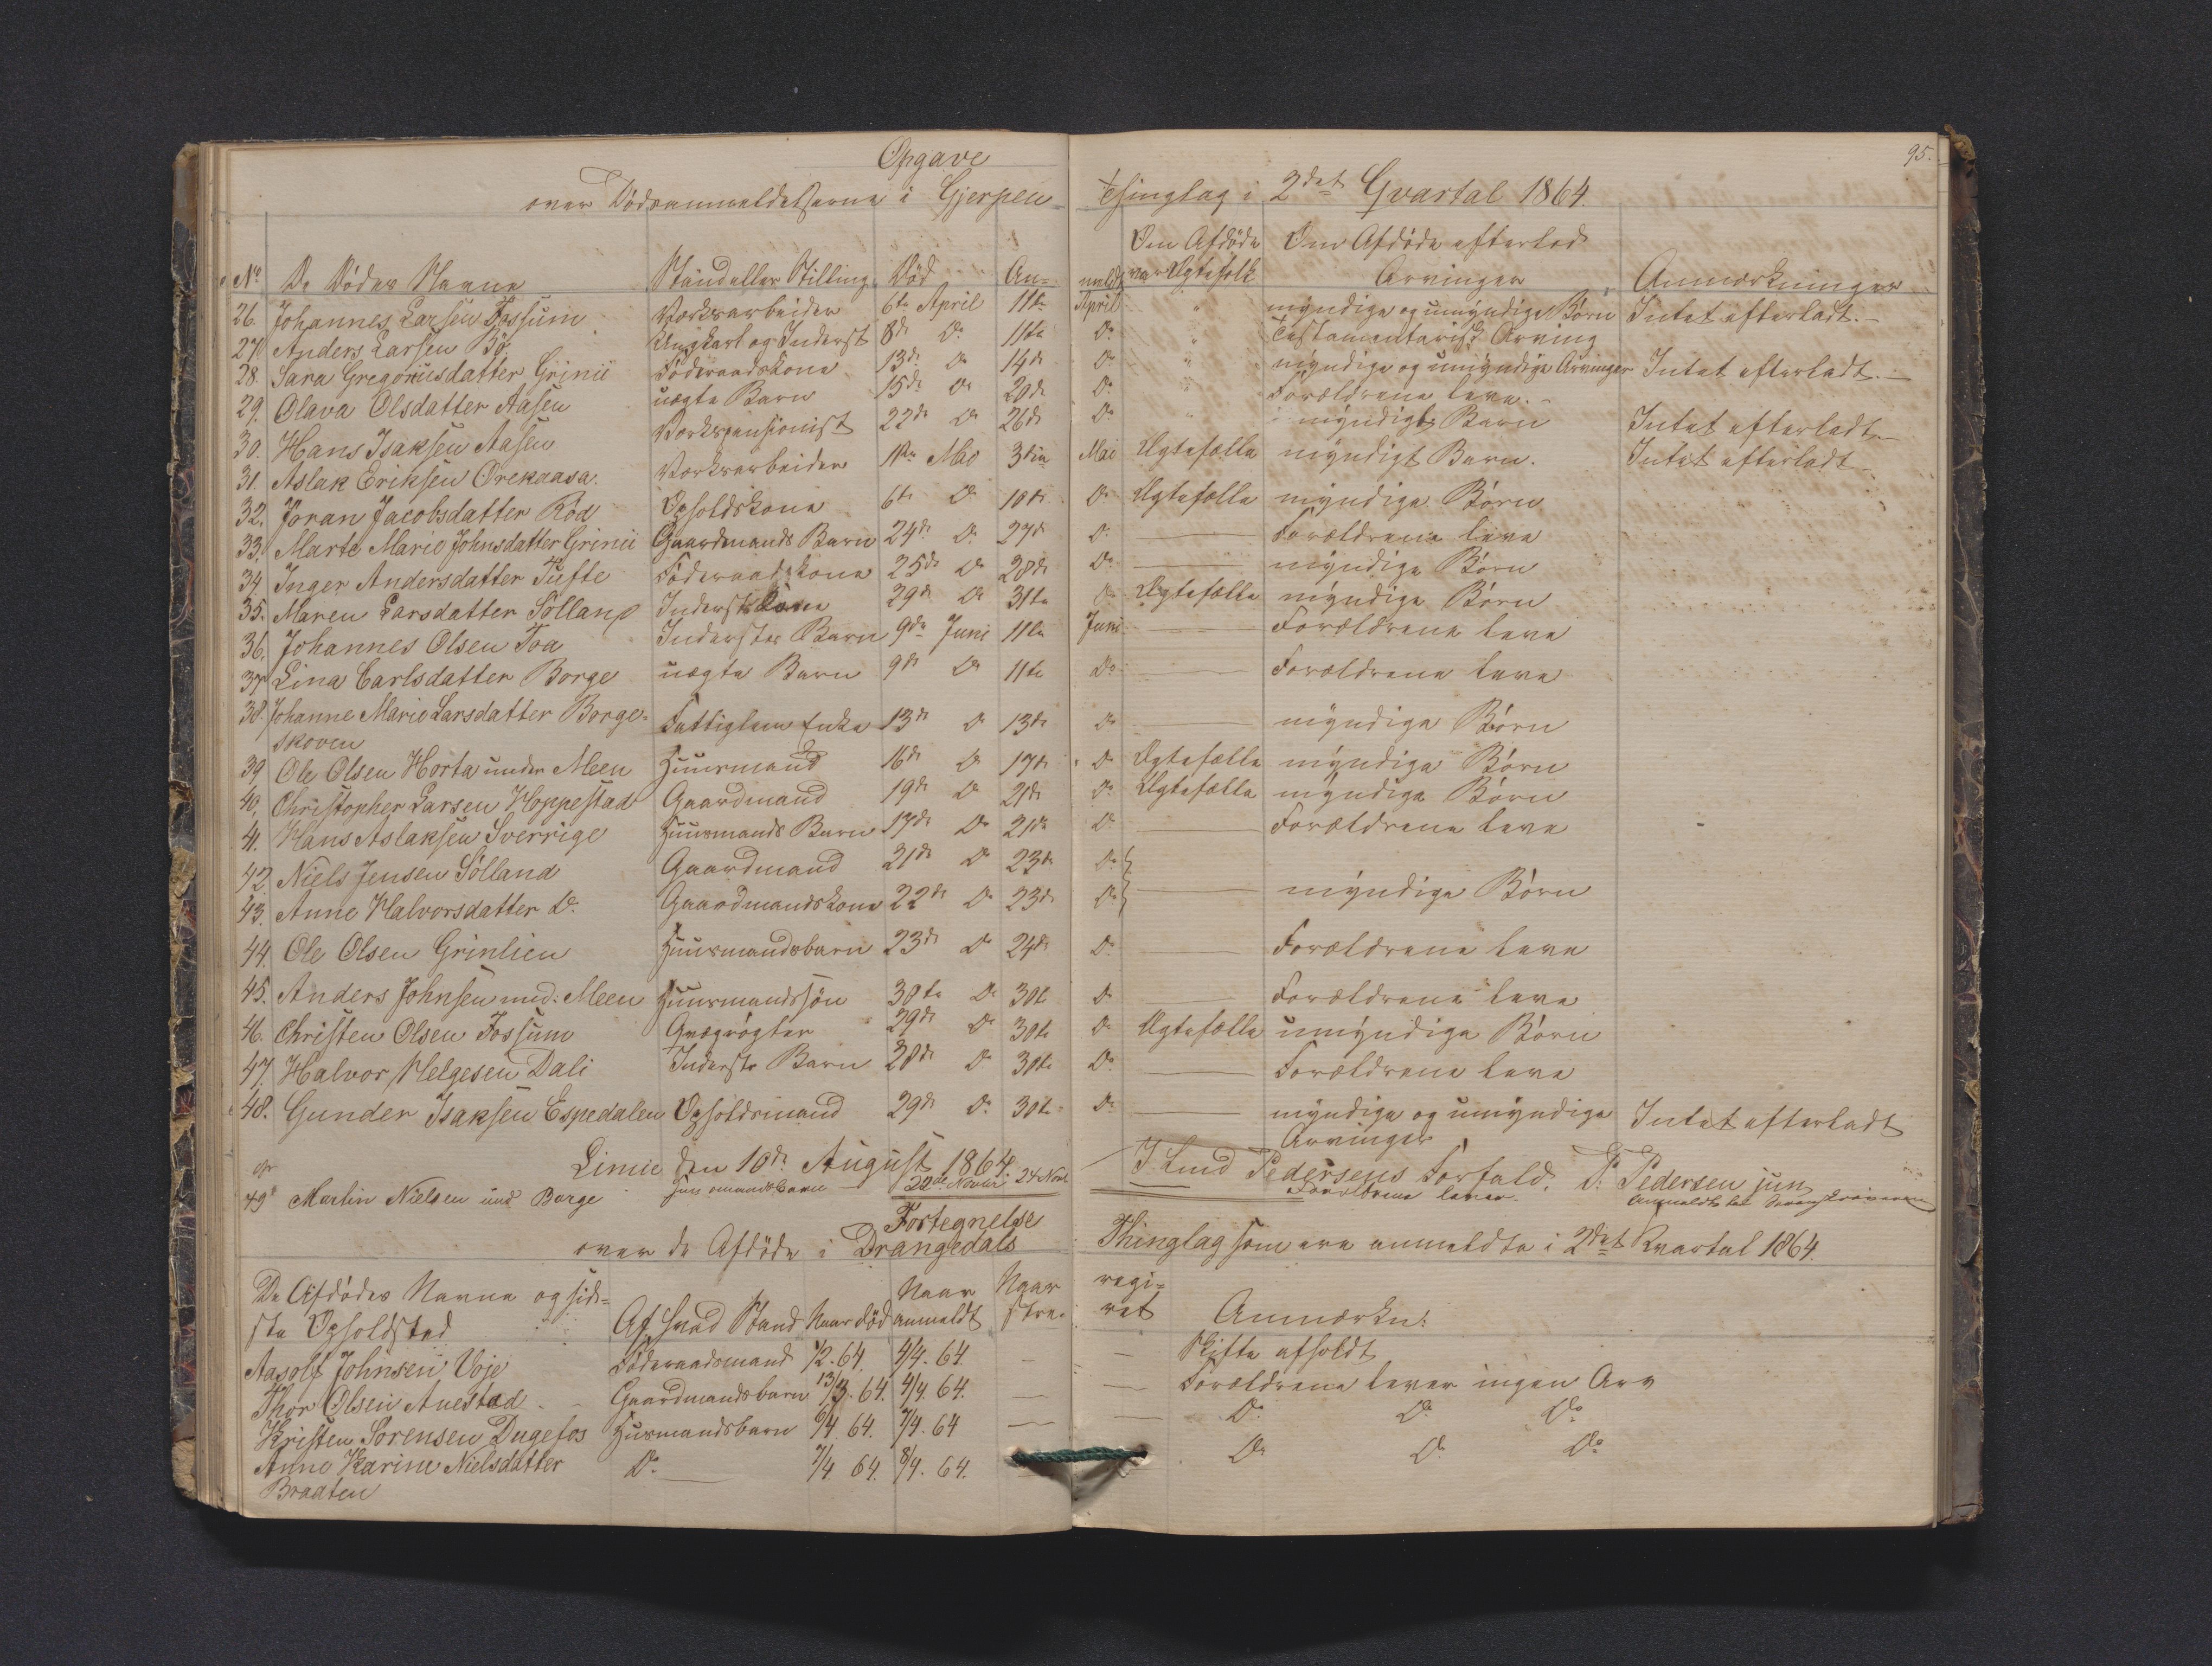 95.
Opgave
over Dödsanmeldelserne i Gjerpen Thinglag i 2det Qvartal 1864.
No De Dödes Navne Stand eller Stilling Död An= meldt Om Afdöde var Ægtefolk Om Afdöde efterlod Arvinger Anmærkninger
26. Johannes Larsen Fossum Værksarbeider 6te April 11te April " myndige og umyndige Börn Intet efterladt.
27. Anders Larsen Bö Ungkarl og Inderst 8de Do 11te Do " Testamentarisk Arving
28. Sara Gregoriusdatter Grinii Föderaadskone 13de Do 14de Do " myndige og umyndige Arvinger Intet efterladt.
29. Olava Olsdatter Aasen uægte Barn 15de Do 20de Do " Forældrene leve.
30. Hans Isaksen Aasen Værkspensionist 22de Do 26de Do " myndigt Barn Intet efterladt
31. Aslak Eriksen Orekaasa. Værksarbeider 1ste Mai 3die Mai Ægtefælle myndigt Barn. Intet efterladt
32. Joran Jacobsdatter Röd Opholdskone 6te Do 10de Do Ægtefælle myndige Börn
33. Marte Marie Johnsdatter Grinii Gaardmands Barn 24de Do 27de Do — Forældrene leve
34. Inger Andersdatter Tufte Föderaadskone 25de Do 28de Do — myndige Börn
35. Maren Larsdatter Sölland Inderst Kone 29de Do 31te Do Ægtefælle myndige Börn
36. Johannes Olsen Foa Inderstes Barn 9de Juni 11te Juni — Forældrene leve
37. Lina Carlsdatter Borge uægte Barn 9de Do 11te Do — Forældrene leve
38. Johanne Marie Larsdatter Borge= Fattiglem Enke 13de Do 13de Do — myndige Börn
skoven
39 Ole Olsen Horta under Meen Huusmand 16de Do 17de Do Ægtefælle myndige Börn
40. Christopher Larsen Hoppestad Gaardmand 19de Do 21de Do Ægtefælle myndige Börn
41. Hans Aslaksen Sverrige Huusmands Barn 17de Do 21de Do — Forældrene leve
42. Niels Jensen Sölland Gaardmand 21de Do 23de Do
43. Anne Halvorsdatter Do Gaardmandskone 22de Do 23de Do — myndige Börn
44. Ole Olsen Grinlien Huusmandsbarn 23de Do 24de Do — Forældrene leve
45. Anders Johnsen und: Meen Huusmandssön 30te Do 30te Do — Forældrene leve
46. Christen Olsen Fossum Qvægrögter 29de Do 30te Do Ægtefælle umyndige Börn
47. Halvor Helgesen Dali Inderst Barn 28de Do 30te Do — Forældrene leve
48. Gunder Isaksen Espedalen Opholdsmand 29de Do 30te Do — myndige og umyndige Intet efterladt
Arvinger
Limie den 10de August 1864. I Lund Pedersens Forfald. P. Pedersen jun
49 Martin Nielsen und Borge Huusmandsbarn 22de Novbr 24 Novbr Forældrene lever. Anmeldt
Fortegnelse
over de Afdöde i Drangedals Thinglag som ere anmeldte i 2det Kvartal 1864.
De Afdödes Navne og sid= Naar Naar regi=
ste Opholdsted Af hvad Stand Naar död anmeldt stre- ret Anmærkn:
Aasolf Johnsen Voje Föderaadsmand 1/2. 64. 4/4. 64. — — Skifte afholdt
Thor Olsen Anestad Gaardmandsbarn 13/3. 64. 4/4 64. — — Forældrene lever ingen Arv
Kristen Sörensen Dugefos Husmandsbarn 6/4 64. 7/4. 64 — — Do Do Do
Anne Karine Nielsdatter Do — 7/4 64. 8/4. 64. Do Do Do
Braaten